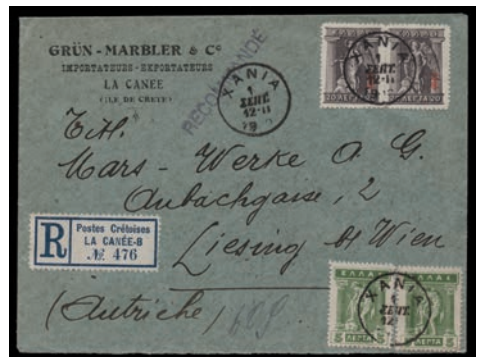 GRÜN - MARBLER & Cº
IMPORTATEURS - EXPORTATEURS
LA CANÉE
(ILE DE CRÈTE)
RECOMMANDÉ
ΧΑΝΙΑ
1
ΣΕΠΤ.
12-11
ΧΑΝΙΑ
1
ΣΕΠΤ.
12-11
Mars - Werke A. G.
Aubachgasse, 2
Liesing b/ Wien
(Autriche)
R
Postes Crétoises
LA CANÉE-8
№ 476
ΕΛΛΑΣ
ΕΛΛΑΣ
ΧΑΝΙΑ
1
ΣΕΠΤ.
5 ΛΕΠΤΑ
ΛΕΠΤΑ 5